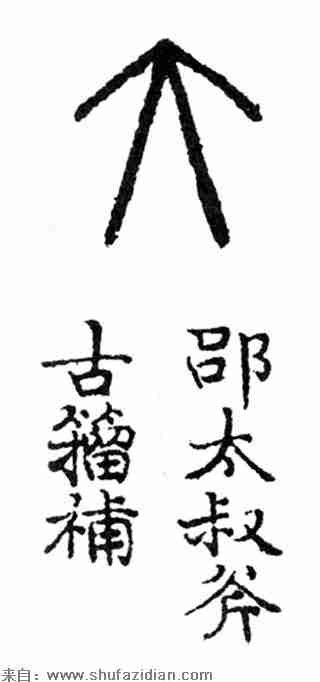 大
邵太叔斧
古籀補
来自：www.shufazidian.com